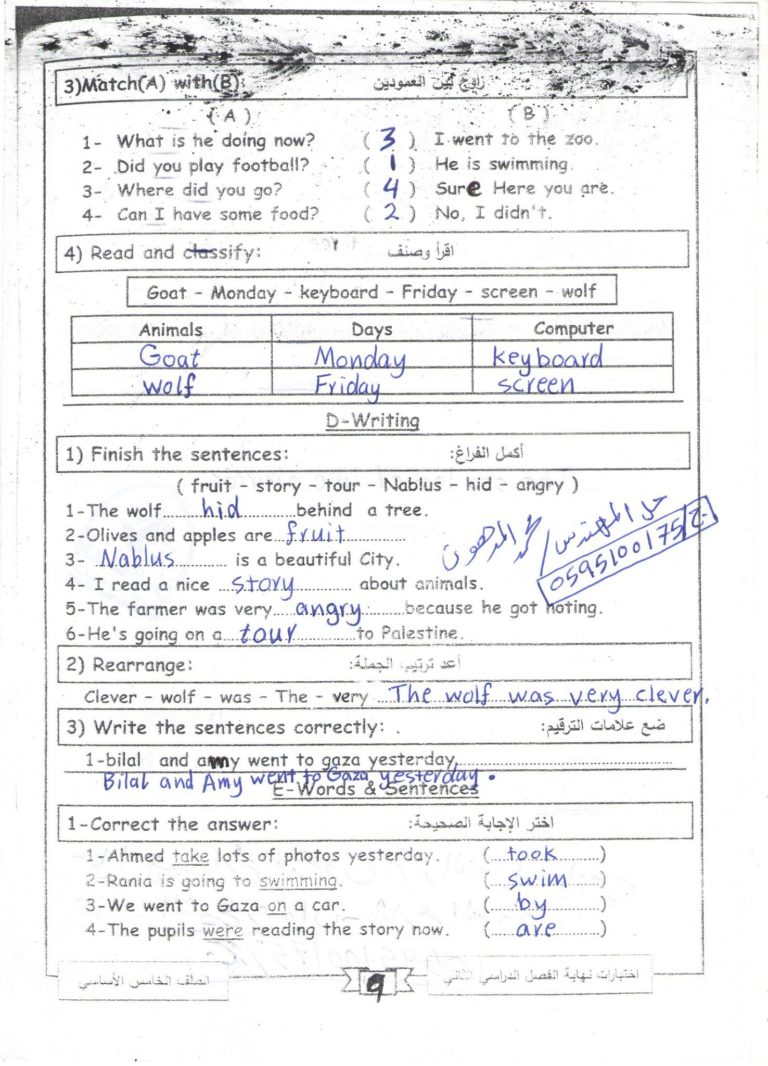 3)Match(A) with(B): زاوج بين العمودين
( A ) ( B )
1- What is he doing now? ( 3 ) I went to the zoo.
2- Did you play football? ( 1 ) He is swimming.
3- Where did you go? ( 4 ) Sure Here you are.
4- Can I have some food? ( 2 ) No, I didn't.
4) Read and classify: اقرأ وصنف
Goat - Monday - keyboard - Friday - screen - wolf
Animals Days Computer
Goat Monday keyboard
wolf Friday screen
D-Writing
1) Finish the sentences: أكمل الفراغ:
( fruit - story - tour - Nablus - hid - angry )
1-The wolf......hid............behind a tree.
2-Olives and apples are..fruit...............
3- .Nablus............ is a beautiful City.
4- I read a nice ...story.............. about animals.
5-The farmer was very....angry.........because he got noting.
6-He's going on a....tour..............to Palestine.
حل المهندس / محمد المدهون
0595100175/ج
2) Rearrange: أعد ترتيب الجملة:
Clever - wolf - was - The - very ...The wolf was very clever.
3) Write the sentences correctly: . ضع علامات الترقيم:
1-bilal and amy went to gaza yesterday..............................
Bilal and Amy went to Gaza yesterday.
E-Words & Sentences
1-Correct the answer: اختر الإجابة الصحيحة:
1-Ahmed take lots of photos yesterday. (....took...........)
2-Rania is going to swimming. (....swim...........)
3-We went to Gaza on a car. (.....by............)
4-The pupils were reading the story now. (.....are...........)
اختبارات نهاية الفصل الدراسي الثاني 9 الصف الخامس الأساسي